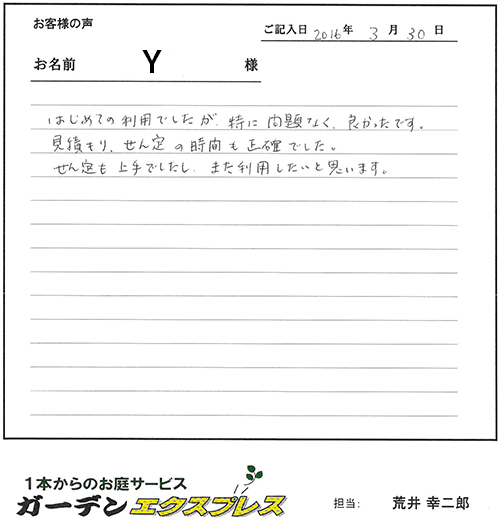 お客様の声
ご記入日 2016年 3月 30日
お名前 Y 様
はじめての利用でしたが、特に問題なく、良かったです。
見積もり、せん定の時間も正確でした。
せん定も上手でしたし、また利用したいと思います。
1本からのお庭サービス
ガーデンエクスプレス
担当: 荒井 幸二郎